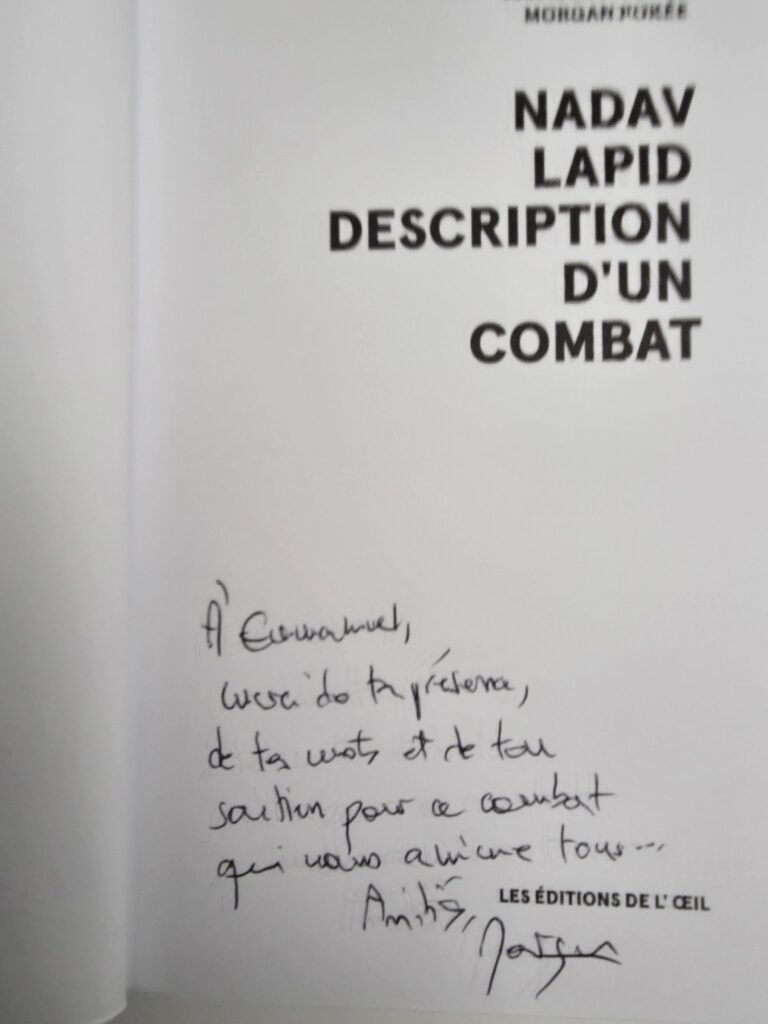 MORGAN POKÉE
NADAV
LAPID
DESCRIPTION
D'UN
COMBAT
À Emmanuel,
merci de ta présence,
de tes mots et de ton
soutien pour ce combat
qui nous anime tous...
Amitiés,
LES ÉDITIONS DE L'ŒIL
Morgan